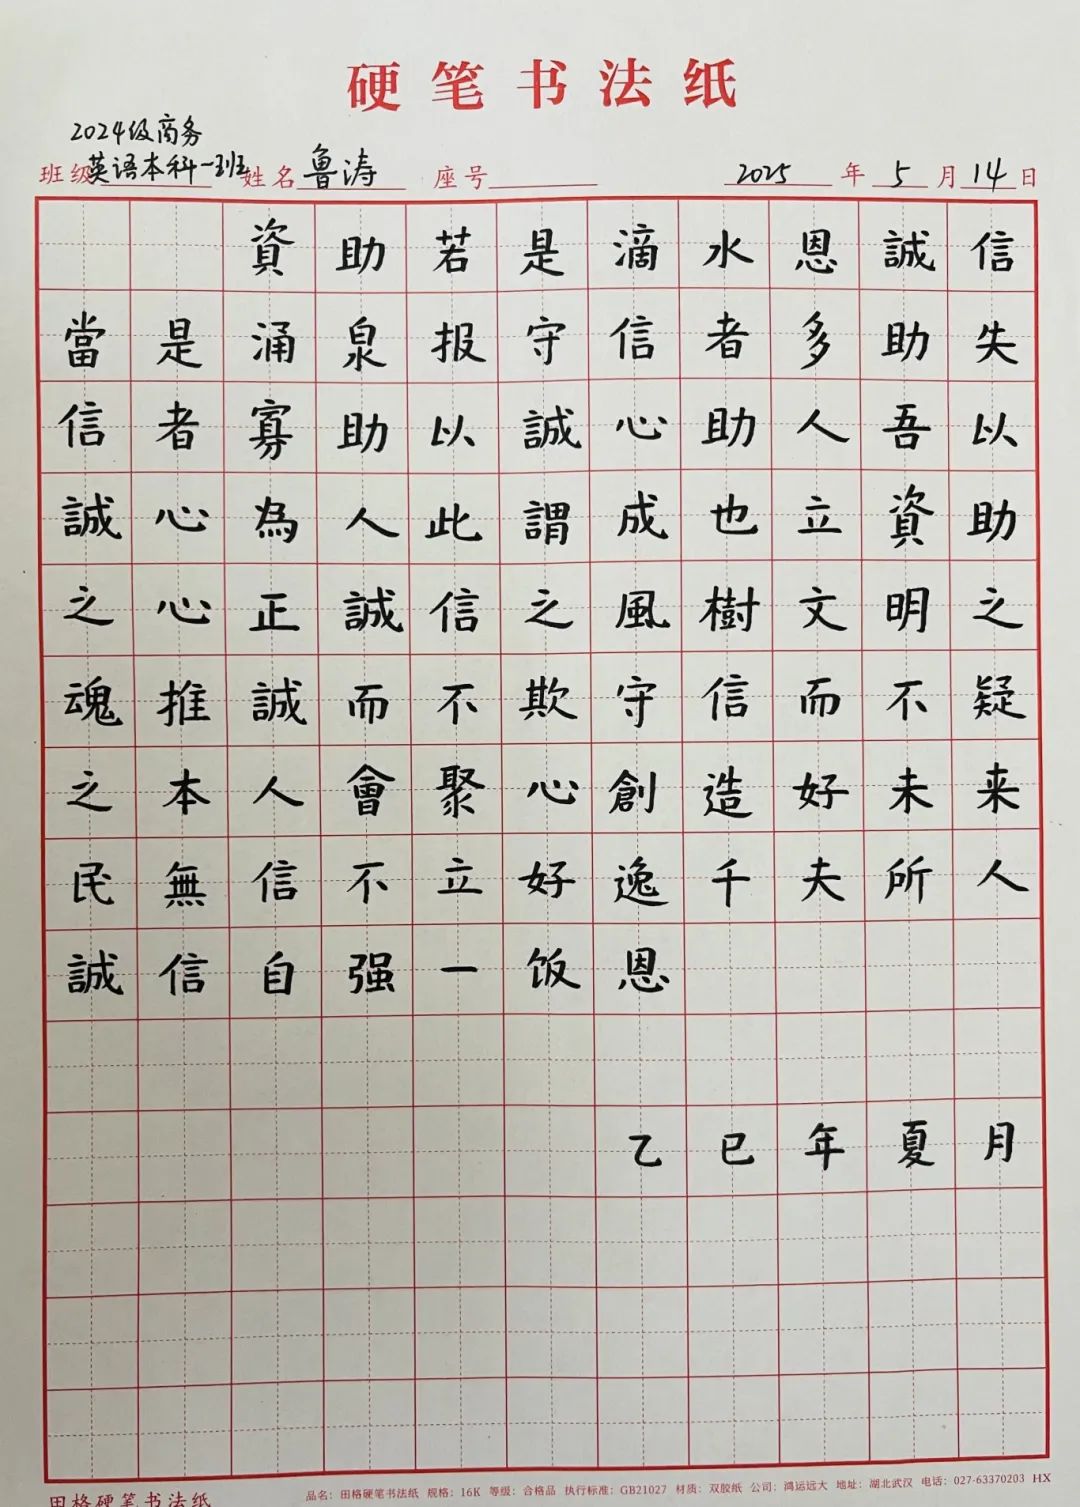 硬笔书法纸
2024级商务
班级英语本科一班 姓名鲁涛 座号 2025年5月14日
資助若是滴水恩誠信
當是涌泉报守信者多助失
信者寡助以誠心助人吾以
誠心為人此謂成也立資助
之心正誠信之風樹文明之
魂推誠而不欺守信而不疑
之本人會聚心創造好未来
民無信不立好逸千夫所人
誠信自强一饭恩
乙巳年夏月
田格硬笔书法纸 品名：田格硬笔书法纸 规格：16K 等级：合格品 执行标准：GB21027 材质：双胶纸 公司：鸿运远大 地址：湖北武汉 电话：027-63370203 HX